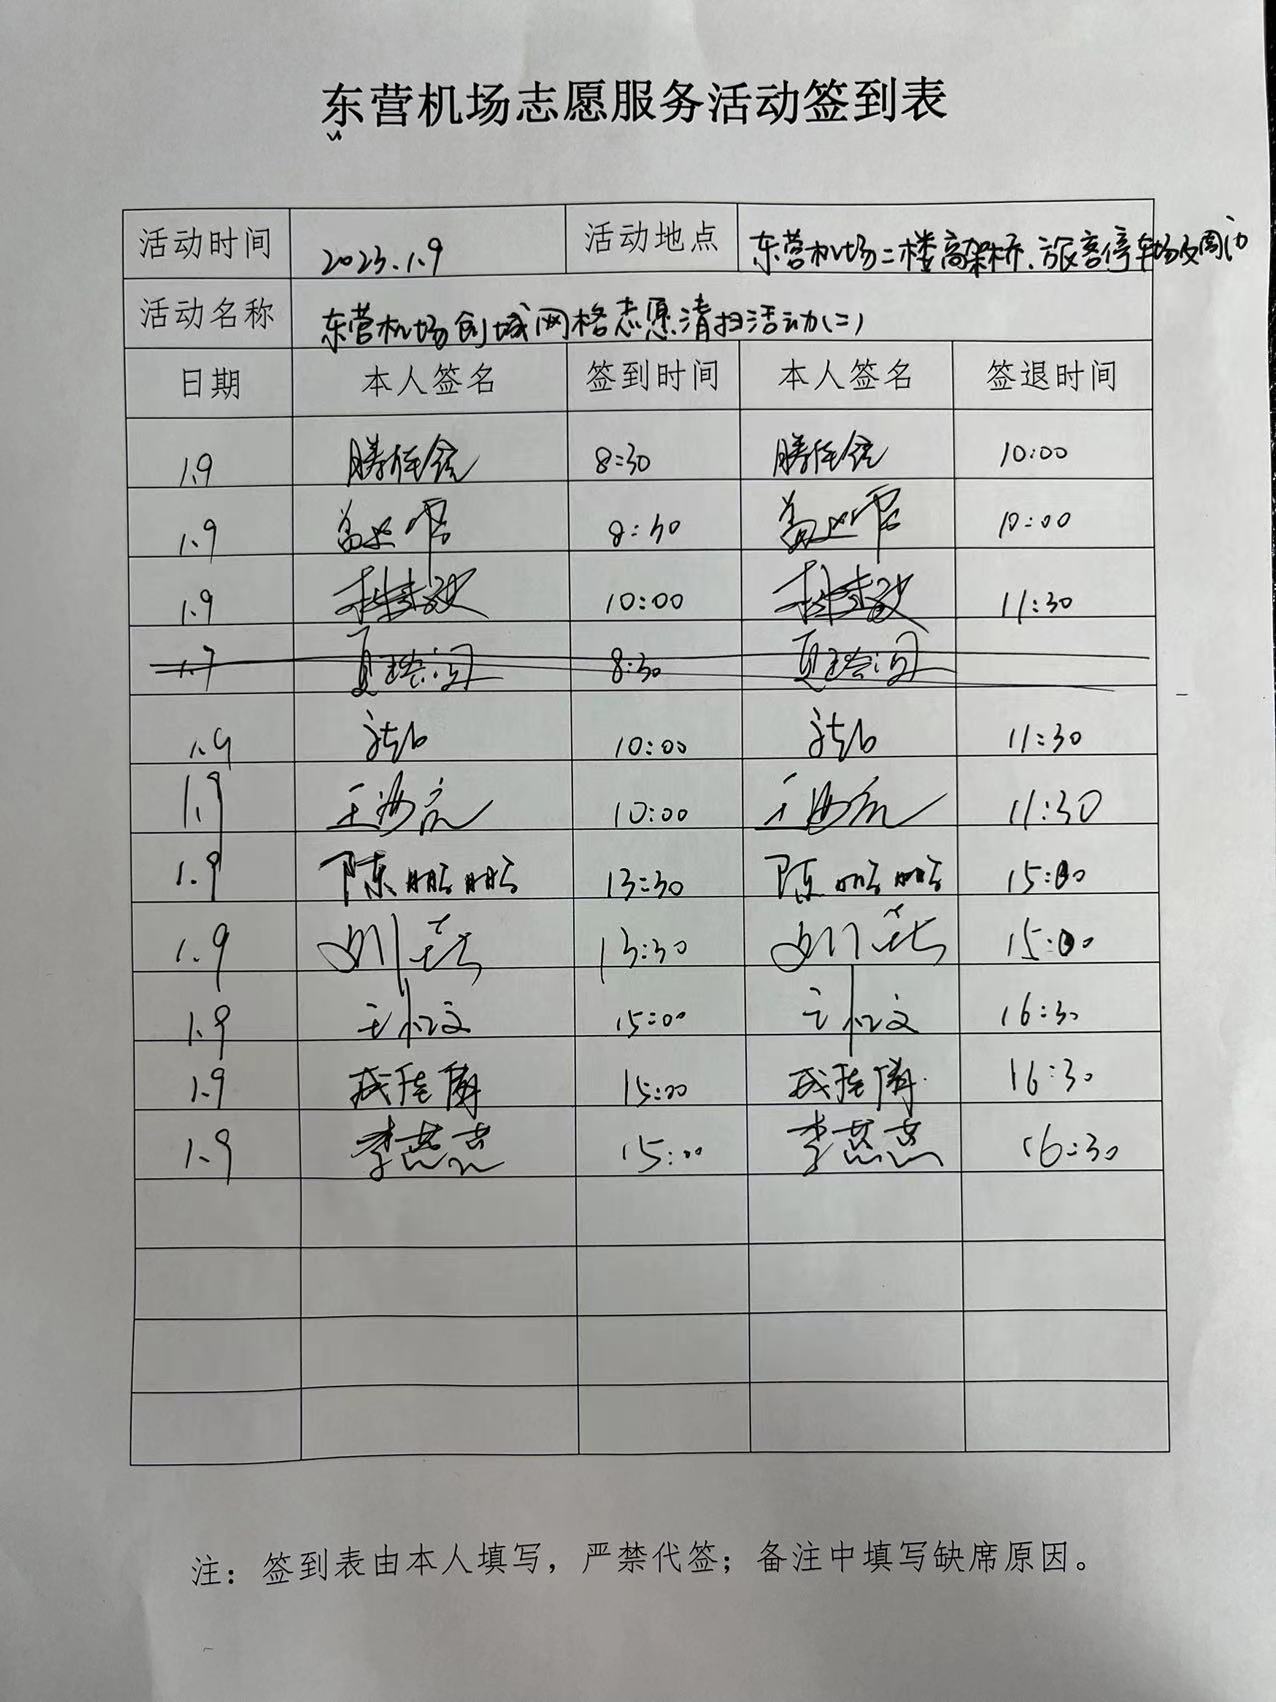 东营机场志愿服务活动签到表
活动时间 2023.1.9 活动地点 东营机场二楼高架桥、旅客停车场及周边
活动名称 东营机场创城网格志愿清扫活动(二)
日期 本人签名 签到时间 本人签名 签退时间
1.9 8:30 10:00
1.9 8:30 10:00
1.9 10:00 11:30
1.7 8:30
1.9 10:00 11:30
1.9 王海亮 10:00 王海亮 11:30
1.9 陈鹏鹏 13:30 陈鹏鹏 15:00
1.9 13:30 15:00
1.9 15:00 16:30
1.9 15:00 16:30
1.9 李燕燕 15:00 李燕燕 16:30
注：签到表由本人填写，严禁代签；备注中填写缺席原因。